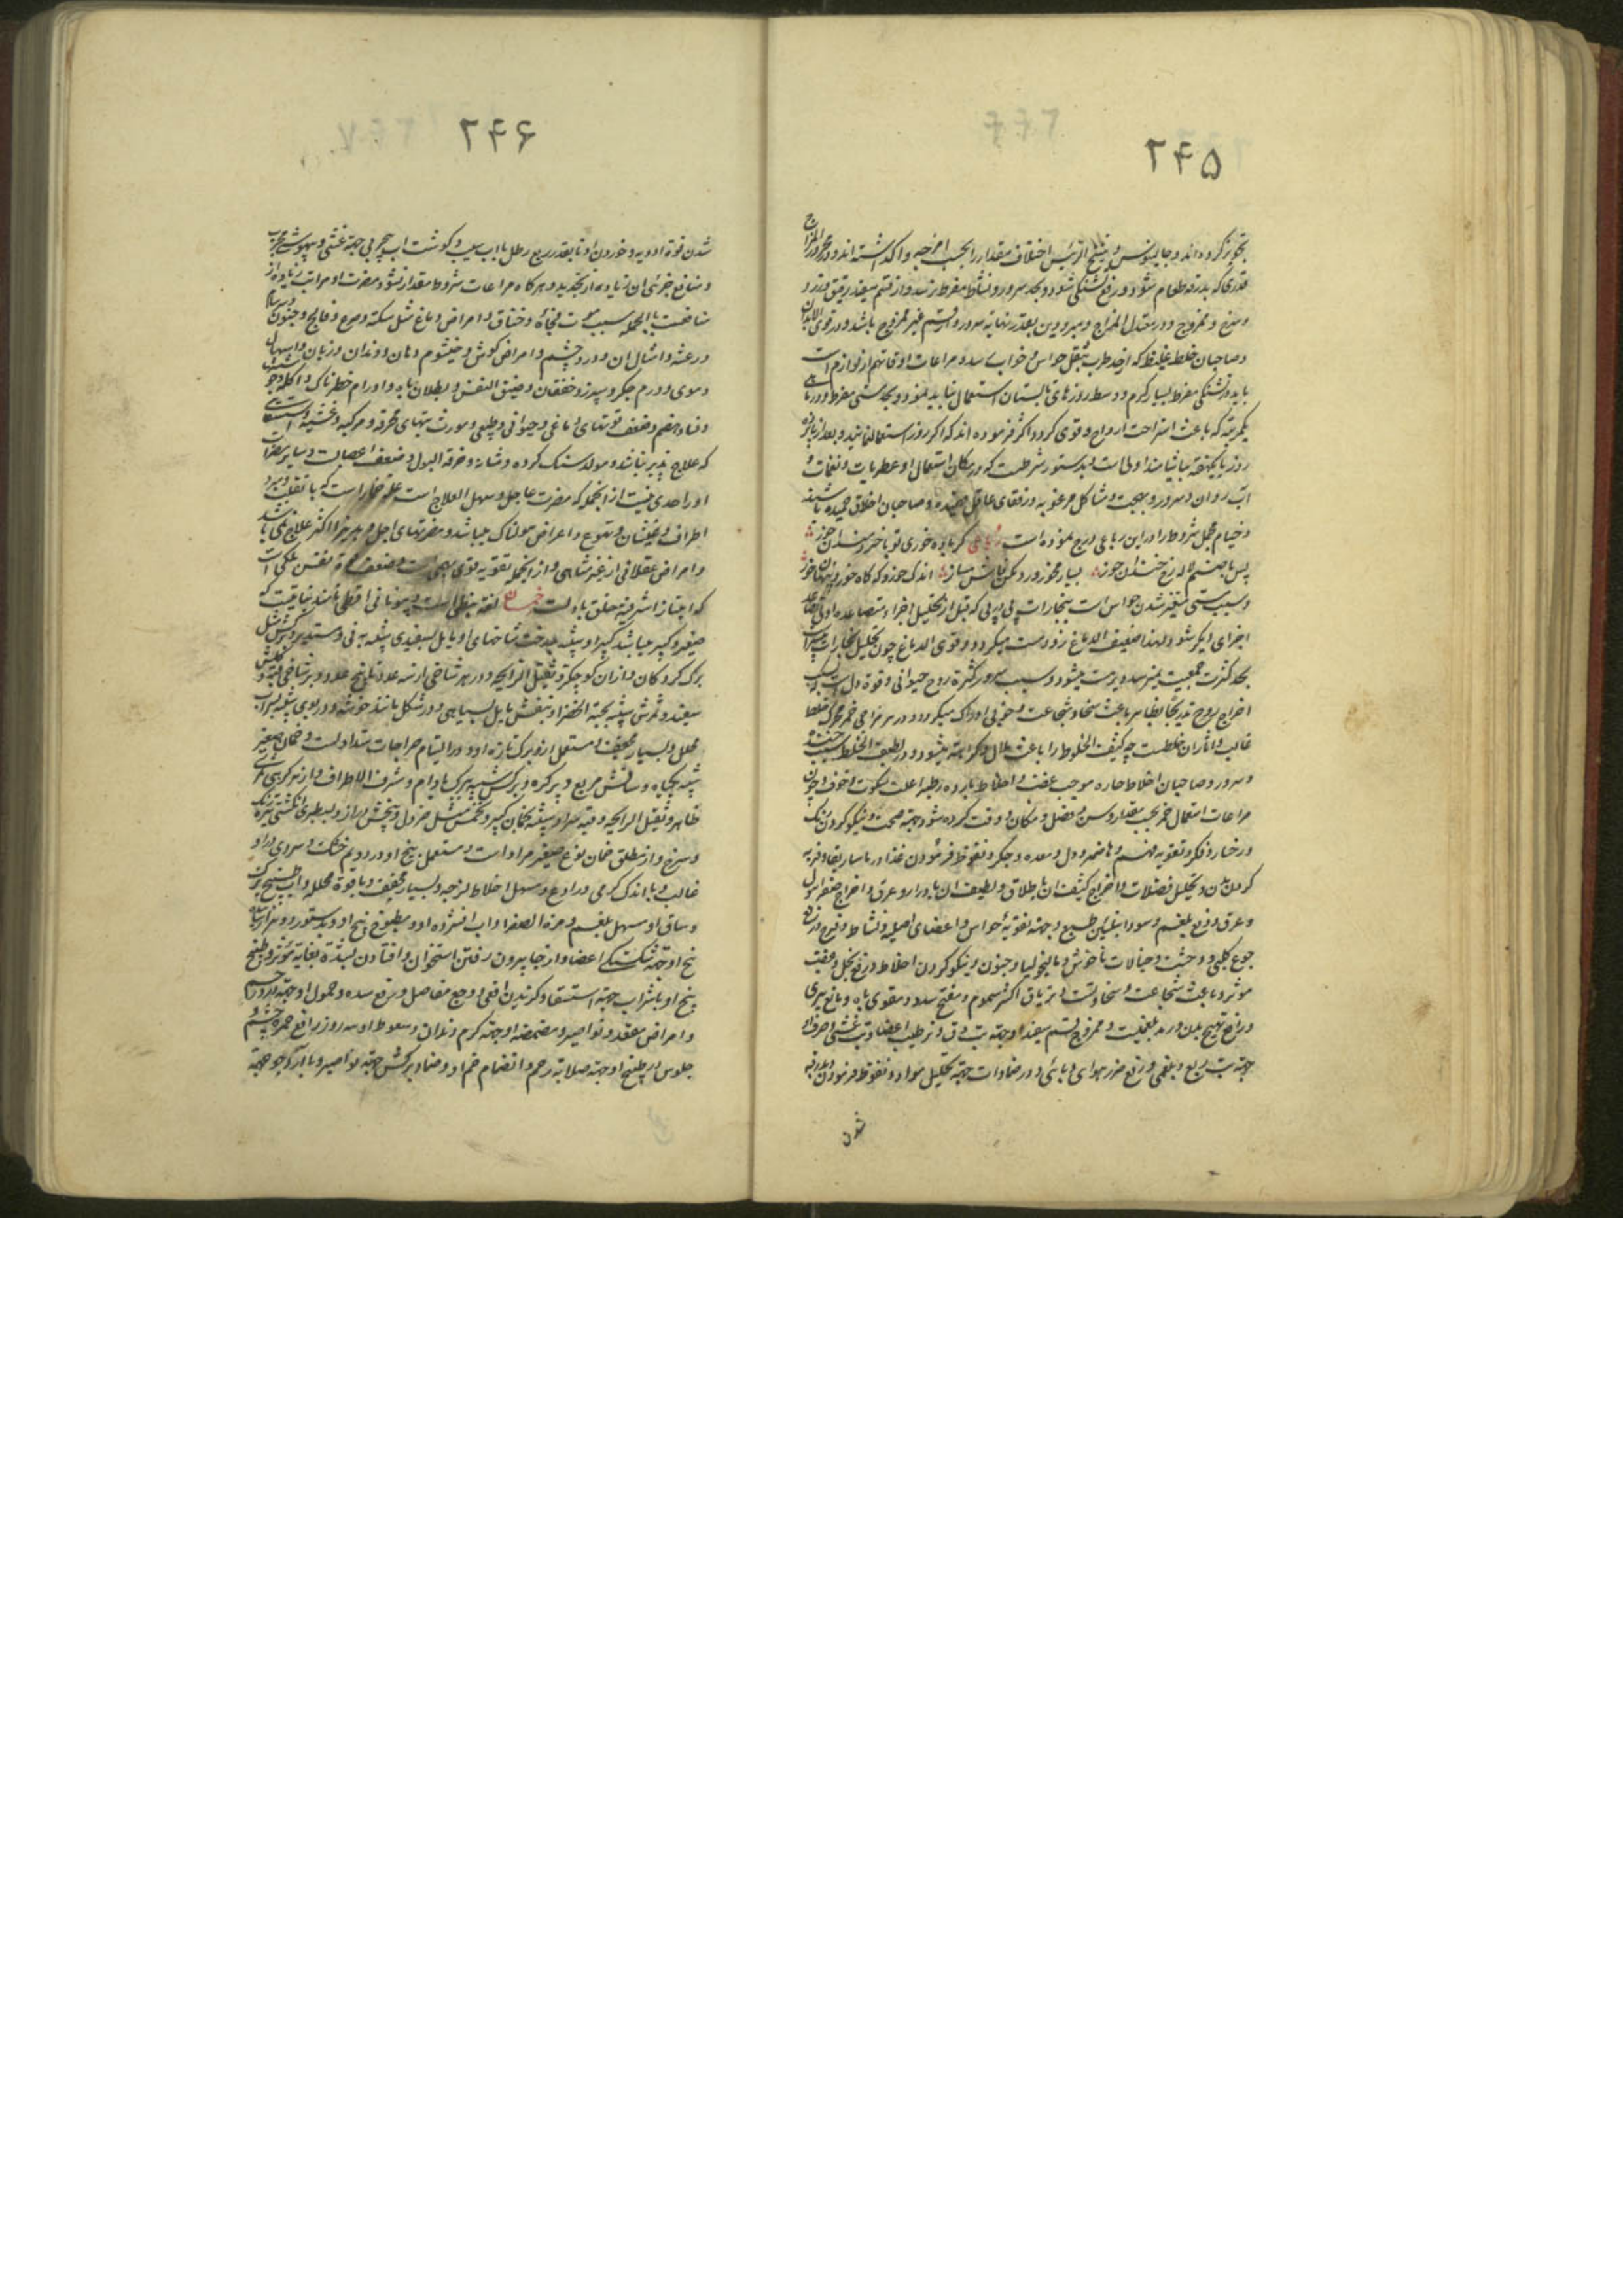 ۲۴۵
تجویز کرده‌اند و جالینوس و شیخ الرئیس اختلاف مقدار را بحسب امزجه واکذاشته‌اند و در محرور المزاج
قدری که بدرقه طعام شود و رفع تشنگی شود و بحد سرور و نشاط مفرط نرسد و از قسم سفید رقیق
و ممزوج و در معتدل المزاج و مبرودین بقدر نهایة سرور و از قسم غیر ممزوج باشد و در قوی الابدان
و صاحبان خلط غلیظ که از حد طرب بثقل حواس و خواب رسد و مراعات اوقات هم از لوازم است
باید در تشنگی مفرط و بسیار گرم و وسط روزهای تابستان استعمال ننمایند و بحد مستی مفرط و در ماهی
یکمرتبه که باعث استراحت ارواح و قوی گردد اکثر فرموده‌اند که اگر روز استعمال نمایند و بعد از
روز یا یکهفته بیاشامند اولی است و بدستور شرطست که در مکان استعمال او عطریات و نغمات و
آب روان و سرور و بهجت و مشاکل مرغوبه و رفقای عاقل فهمیده و صاحبان اخلاق حمیده باشند
و خیام مجمل شروط را در این رباعی درج نموده است رباعی گر باده خوری تو با خردمندان خور
یا با صنمی لاله رخ خندان خور بسیار مخور ورد مکن فاش مساز اندک خور و گه گاه خور و پنهان خور
و سبب مستی متغیر شدن حواس است ببخارات پی در پی که قبل از تحلیل اجزاء متصاعده اولی
اجزای دیگر شود و لهذا ضعیف الدماغ زود مست میگردد و قوی الدماغ چون تحلیل بخارات
بحد کثرت جمعیت نمیرسد دیر مست میشود و سبب سرور کثرة روح حیوانی و قوة دل است و
اخراج روح تدریجا بظاهر باعث سخا و شجاعت و خوبی ادراک میگردد و در هر مزاجی خمر محرک خلط
غالب و اثار آن خلطست چه کثیف الخلوط را باعث ملال و کراهت میشود و در لطیف الخلط سبب خنده
و سرور و صاحبان اخلاط حاره موجب غضب و اخلاط بارده رطبه را علت سکوت و خوف و چون
مراعات استعمال خمر بحسب مقدار و سن و فصل و مکان و وقت کرده شود جهة صحت و نیکو کردن رنگ
رخسار و فکر و تقویه فهم و هاضمه و دل و معده و جگر و نفوذ فرمودن غذا در ماساریقا و فربه
کردن بدن و تحلیل فضلات و اخراج کثیف آن باطلاق و لطیف آن بادرار و عرق و اخراج صفرا ببول
و عرق و دفع بلغم و سودا بتلیین طبع و جهة تقویه حواس و اعضای اصلیه و نشاط و تفریح و
جوع کلبی و وحشت و خیالات ناخوش و مالیخولیا و جنون و نیکو کردن اخلاط و رفع بخل و
موثر و باعث شجاعت و سخاوتست و تریاق اکثر سموم و مفتح سدد و مقوی باه و مانع پیری
و رافع تهیج بدن و رمد بلغمیست و ممزوج قسم سفید او جهة تب دق و ترطیب اعضا و تب غشی
جهة تب ربع و بلغمی و رفع ضرر هوای وبائی و در ضمادات جهة تحلیل مواد و نفوذ فرمودن و بدرقه
شدن
۲۴۶
شدن قوة ادویه و خوردن او تا بقدر ربع رطل با آب سیب و گوشت آب جهة غشی و بیهوشی مجرب
و منافع جزئی آن زیاده از تحدید و هرگاه مراعات شروط و مقدار نشود مضرت او مراتب زیاده از
منافعست بالجمله سبب موت فجأة و خناق و امراض دماغ مثل سکته و صرع و فالج و جنون و سبات
و رعشه و امثال آن و درد چشم و امراض گوش و خیشوم و دهان و دندان و زبان و اسهال
دموی و ورم جگر و سپرز و خفقان و ضیق النفس و بطلان باه و اورام خطرناک و آکله و
و فساد هضم و ضعف قوتهای دماغی و حیوانی و طبیعی و مورث تبهای محرقه و مرکبه و غشیه و استسقا
که علاج پذیر نباشد و مولد سنگ گرده و مثانه و حرقة البول و ضعف اعصاب و سایر مضرات
او را حدی نیست از انجمله که مضرت عاجل و سهل العلاج است علة خمار است که با تقلب و برد
اطراف و غثیان و تهوع و اعراض هولناک میباشد و مضرتهای اجل و دیر
و امراض عقلانی از غیر متناهی و از انجمله تقویه قوی بهیمی است و ضعف قوة نفس ملکی است
که امتیاز اشرفیه خلق باوست خمان لغة نبطی است و بیونانی اقطی نامند نباتیست که
صغیر و کبیر میباشد کبیر او پیشه بدرخت شاخهای او مایل بسفیدی شبیه به نی و مستدیر و برگش مثل
برگ گردکان و از آن کوچکتر و ثقیل الرایحه و در هر شاخی از سه عدد تا پنج عدد و بر شاخی قبه و گلش
سفید و ثمرش شبیه بحبة الخضراء بنفش مایل بسیاهی و در شکل مانند خوشه و در بوی شبیه بشراب
محلل و بسیار مجفف و مستعمل از او برگ تازه او و در التیام جراحات متداولست و خمان صغیر
شبیه بگیاه و ساقش مربع و پر گره و برگش شبیه ببرگ بادام و مشرف الاطراف و از هر گرهی
ظاهر و ثقیل الرایحه و قبه سر او شبیه بخمان کبیر و تخمش مثل خردل و بیخش دراز و بسطبری انگشتی تیره رنگ
و سرخ و از مطلق خمان نوع صغیر مراد است و مستعمل بیخ او در دویم خشک و سردی در او
غالب و با اندک گرمی و رادع و مسهل اخلاط لزجه و بسیار مجفف و با قوة محلله و آب طبیخ برگ
و ساق او مسهل بلغم و مرة الصفرا و آب افشرده او و مطبوخ بیخ او و بدستور و
بیخ او جهة شکستگی اعضا و از جا بیرون رفتن استخوان و افتادن بشدة بغایة مؤثر و طبیخ
بیخ او با شراب جهة استسقا و گزیدن افعی و وجع مفاصل و رفع سده و حمول او جهة
و امراض مقعد و نواصیر و مضمضه او جهة کرم دندان و سعوط او سه روز رافع حمره چشم و
جلوس در طبیخ او جهة صلابة رحم و انضمام فم او و ضماد برگش جهة نواصیر و با آرد جو جهة